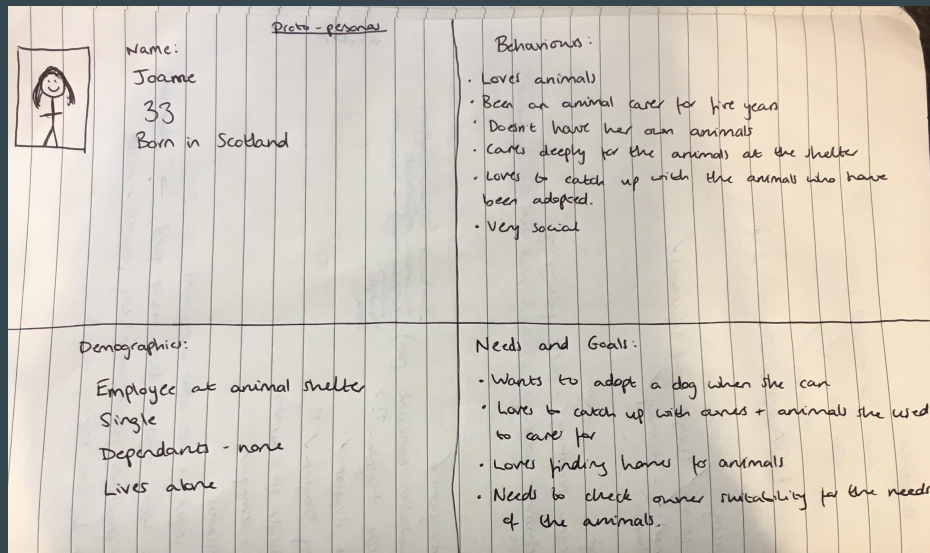 Proto-pesona
Name:
Joanne
33
Born in Scotland
Behaviours:
· Loves animals
· Been an animal carer for five years
· Doesn't have her own animals
· Cares deeply for the animals at the shelter
· Loves to catch up with the animals who have
been adopted.
· Very social
Demographics:
Employee at animal shelter
Single
Dependants - none
Lives alone
Needs and Goals:
· Wants to adopt a dog when she can
· Loves to catch up with owners + animals she used
to carer for
· Loves finding homes for animals
· Needs to check owner suitability for the needs
of the animals.